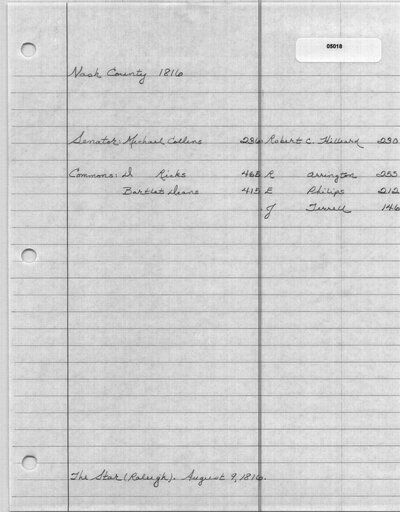 05018
Nash County 1816
Senator: Michael Collins 296 Robert C. Hilliard 290
Commons: D Ricks 465 R Arrington 255
Bartlet Deans 415 E Philips 212
J Terrell 146
The Star (Raleigh). August 9, 1816.